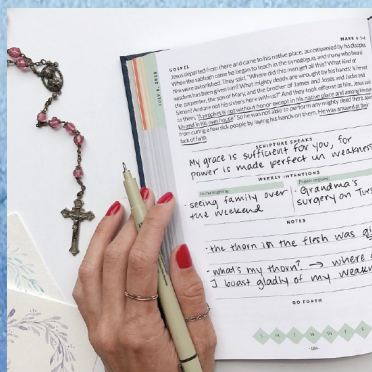 MARK 6:1-6
GOSPEL
JULY 4, 2021
Jesus departed from there and came to his native place, accompanied by his disciples.
When the sabbath came he began to teach in the synagogue, and many who heard
him were astonished. They said, "Where did this man get all this? What kind of
wisdom has been given him? What mighty deeds are wrought by his hands! Is he not
the carpenter, the son of Mary, and the brother of James and Joses and Judas and
Simon? And are not his sisters here with us?" And they took offense at him. Jesus said
to them, "A prophet is not without honor except in his native place and among his own
kin and in his own house." So he was not able to perform any mighty deed there, apart
from curing a few sick people by laying his hands on them. He was amazed at their
lack of faith.
SCRIPTURE SPEAKS
My grace is sufficient for you, for
power is made perfect in weakness
WEEKLY INTENTIONS
seeing family over
the weekend
Grandma's
surgery on Tues
NOTES
the thorn in the flesh was
what's my thorn? → where
I boast gladly of my weakn
GO FORTH